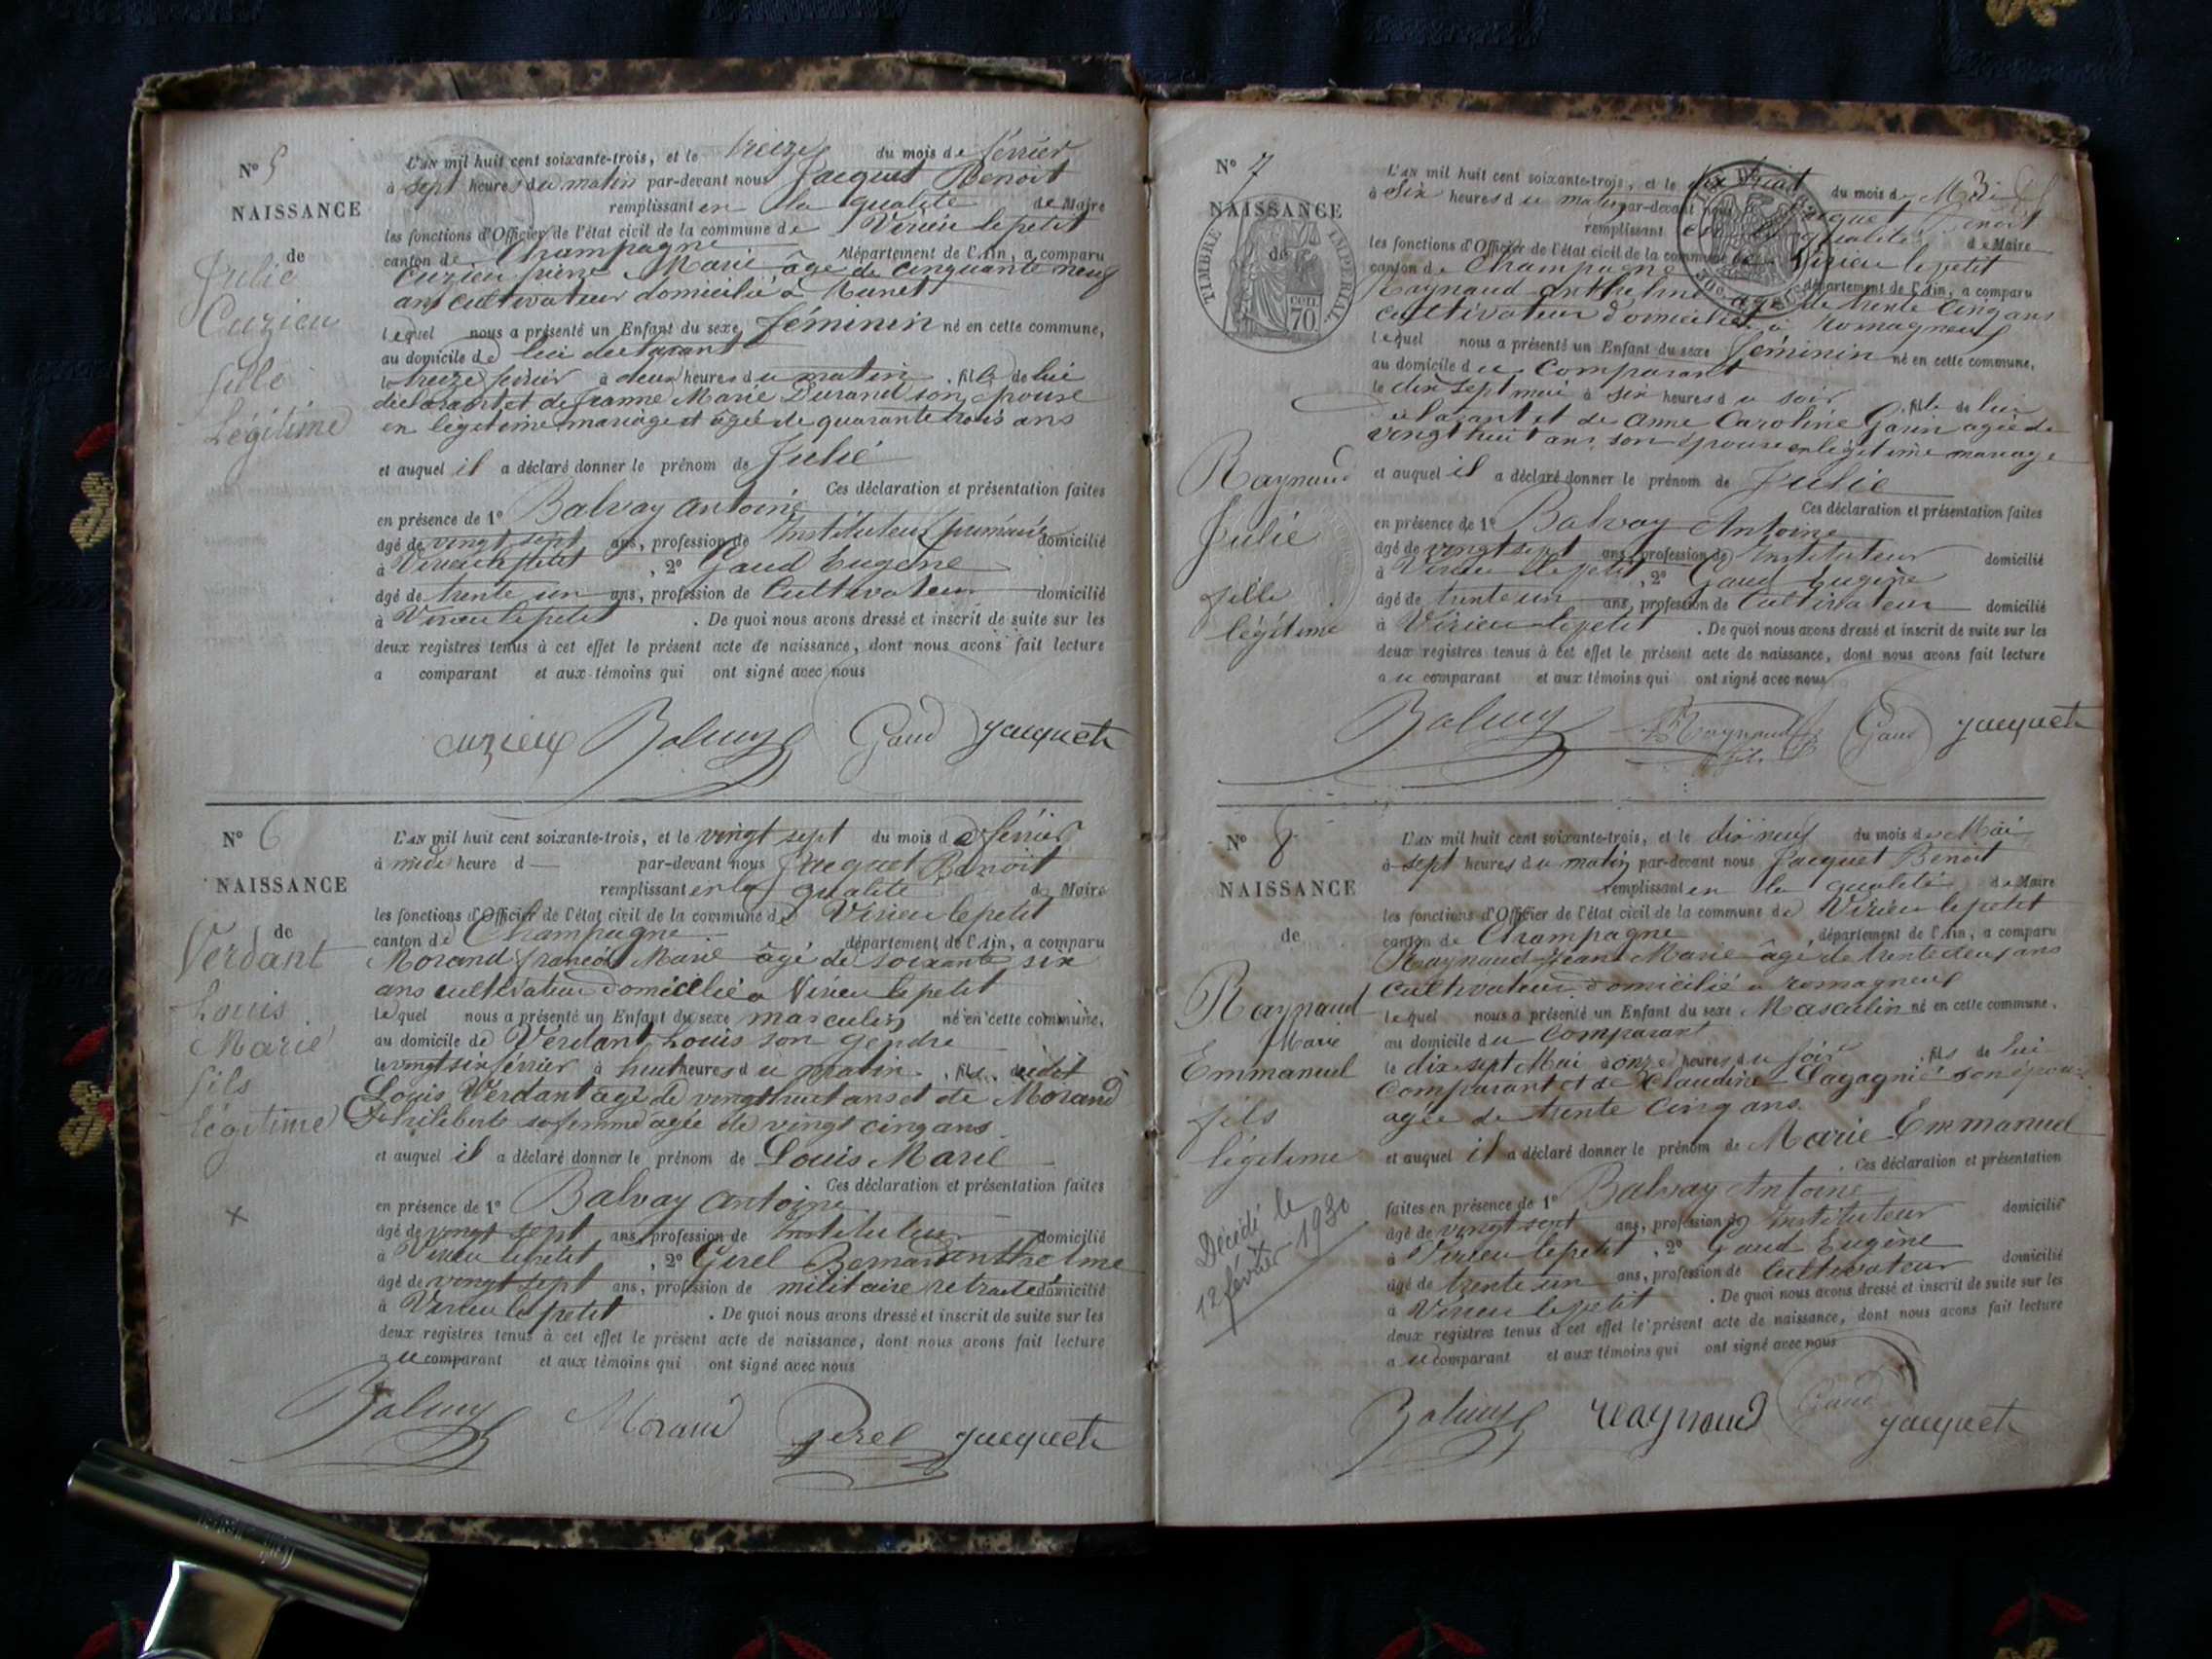 N° 5
NAISSANCE
de
Julie
Cuzieu
fille
Légitime
L'AN mil huit cent soixante-trois, et le treize du mois de février
à sept heures du matin par-devant nous Jacquet Benoit
remplissant en la qualité de Maire
les fonctions d'Officier de l'état civil de la commune de Virieu le petit
canton de Champagne département de l'Ain, a comparu
Cuzieu pierre Marie âgé de cinquante neuf
ans cultivateur domicilié à Munet
lequel nous a présenté un Enfant du sexe féminin né en cette commune,
au domicile de lui déclarant
le treize février à deux heures du matin, fille de lui
déclarant et de jeanne Marie Durand son épouse
en légitime mariage et âgée de quarante trois ans
et auquel il a déclaré donner le prénom de Julie
Ces déclaration et présentation faites
en présence de 1° Balvay antoine
âgé de vingt sept ans, profession de Instituteur primaire domicilié
à Virieu le petit, 2° Gaud Eugène
âgé de trente un ans, profession de Cultivateur domicilié
à Virieu le petit. De quoi nous avons dressé et inscrit de suite sur les
deux registres tenus à cet effet le présent acte de naissance, dont nous avons fait lecture
a comparant et aux témoins qui ont signé avec nous
cuzieu Balvay Gaud jacquet
N° 6
NAISSANCE
de
Verdant
Louis
Marie
fils
légitime
L'AN mil huit cent soixante-trois, et le vingt sept du mois de février
à midi heure d par-devant nous Jacquet Benoit
remplissant en la qualité de Maire
les fonctions d'Officier de l'état civil de la commune de Virieu le petit
canton de Champagne département de l'Ain, a comparu
Morand françois Marie âgé de soixante six
ans cultivateur domicilié a Virieu le petit
lequel nous a présenté un Enfant du sexe masculin né en cette commune,
au domicile de Verdant Louis son gendre
le vingt six février à huit heures du matin, fils dudit
Louis Verdant âgé de vingt huit ans et de Morand
Philiberte sa femme âgée de vingt cinq ans
et auquel il a déclaré donner le prénom de Louis Marie
Ces déclaration et présentation faites
en présence de 1° Balvay antoine
âgé de vingt sept ans, profession de Instituteur domicilié
à Virieu le petit, 2° Gerel Bernard anthelme
âgé de vingt sept ans, profession de militaire retraité domicilié
à Virieu le petit. De quoi nous avons dressé et inscrit de suite sur les
deux registres tenus à cet effet le présent acte de naissance, dont nous avons fait lecture
au comparant et aux témoins qui ont signé avec nous
Balvay Morand Gerel jacquet
N° 7
NAISSANCE
de
TIMBRE IMPERIAL
70 cen
Raynaud
Julie
fille
légitime
L'AN mil huit cent soixante-trois, et le dix huit du mois de Mai
à six heures du matin par-devant nous Jacquet Benoit
remplissant en la qualité de Maire
les fonctions d'Officier de l'état civil de la commune de Virieu le petit
canton de Champagne département de l'Ain, a comparu
Raynaud anthelme âgé de trente cinq ans
cultivateur domicilié à romagneux
lequel nous a présenté un Enfant du sexe féminin né en cette commune,
au domicile du comparant
le dix sept mai à six heures du soir, fille de lui
déclarant et de anne Caroline Garin agée de
vingt huit ans son épouse en légitime mariage
et auquel il a déclaré donner le prénom de Julie
Ces déclaration et présentation faites
en présence de 1° Balvay Antoine
âgé de vingt sept ans, profession de Instituteur domicilié
à Virieu le petit, 2° Gaud Eugène
âgé de trente un ans, profession de Cultivateur domicilié
à Virieu le petit. De quoi nous avons dressé et inscrit de suite sur les
deux registres tenus à cet effet le présent acte de naissance, dont nous avons fait lecture
au comparant et aux témoins qui ont signé avec nous
Balvay Raynaud Gaud jacquet
N° 8
NAISSANCE
de
Raynaud
Marie
Emmanuel
fils
légitime
Décédé le
12 février 1930
L'AN mil huit cent soixante-trois, et le dix neuf du mois de Mai
à sept heures du matin par-devant nous Jacquet Benoit
remplissant en la qualité de Maire
les fonctions d'Officier de l'état civil de la commune de Virieu le petit
canton de Champagne, département de l'Ain, a comparu
Raynaud Jean Marie âgé de trente deux ans
cultivateur domicilié a romagneux
lequel nous a présenté un Enfant du sexe Masculin né en cette commune,
au domicile du comparant
le dix sept Mai à onze heures du soir, fils de lui
comparant et de Claudine son épouse
agée de trente cinq ans.
et auquel il a déclaré donner le prénom de Marie Emmanuel
Ces déclaration et présentation
faites en présence de 1° Balvay Antoine
âgé de vingt sept ans, profession de Instituteur domicilié
à Virieu le petit, 2° Gaud Eugène
âgé de trente un ans, profession de Cultivateur domicilié
à Virieu le petit. De quoi nous avons dressé et inscrit de suite sur les
deux registres tenus à cet effet le présent acte de naissance, dont nous avons fait lecture
au comparant et aux témoins qui ont signé avec nous
Balvay raynaud Gaud jacquet